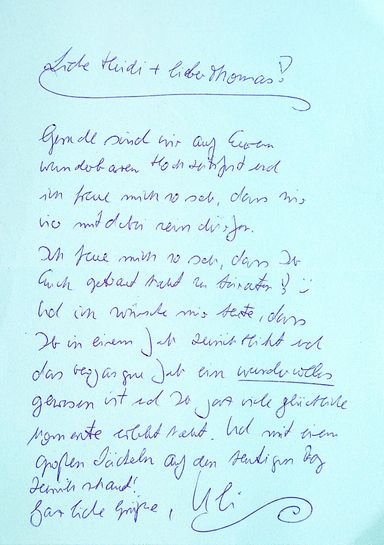 Liebe Heidi + lieber Thomas!
Gerade sind wir auf Eurem
wunderbaren Hochzeitsfest und
ich freue mich so seh, dass wir
hier mit dabei sein dürfen.
Ich freue mich so seh, dass Ihr
Euch getraut habt zu heiraten! :)
Und ich wünsche mir heute, dass
Ihr in einem Jahr zurückblickt und
das vergangene Jahr ein wundervolles
gewesen ist und Ihr ganz viele glückliche
Momente erlebt habt. Und mit einem
großen Lächeln auf den heutigen Tag
zurückschaut!
Ganz liebe Grüße, Uli